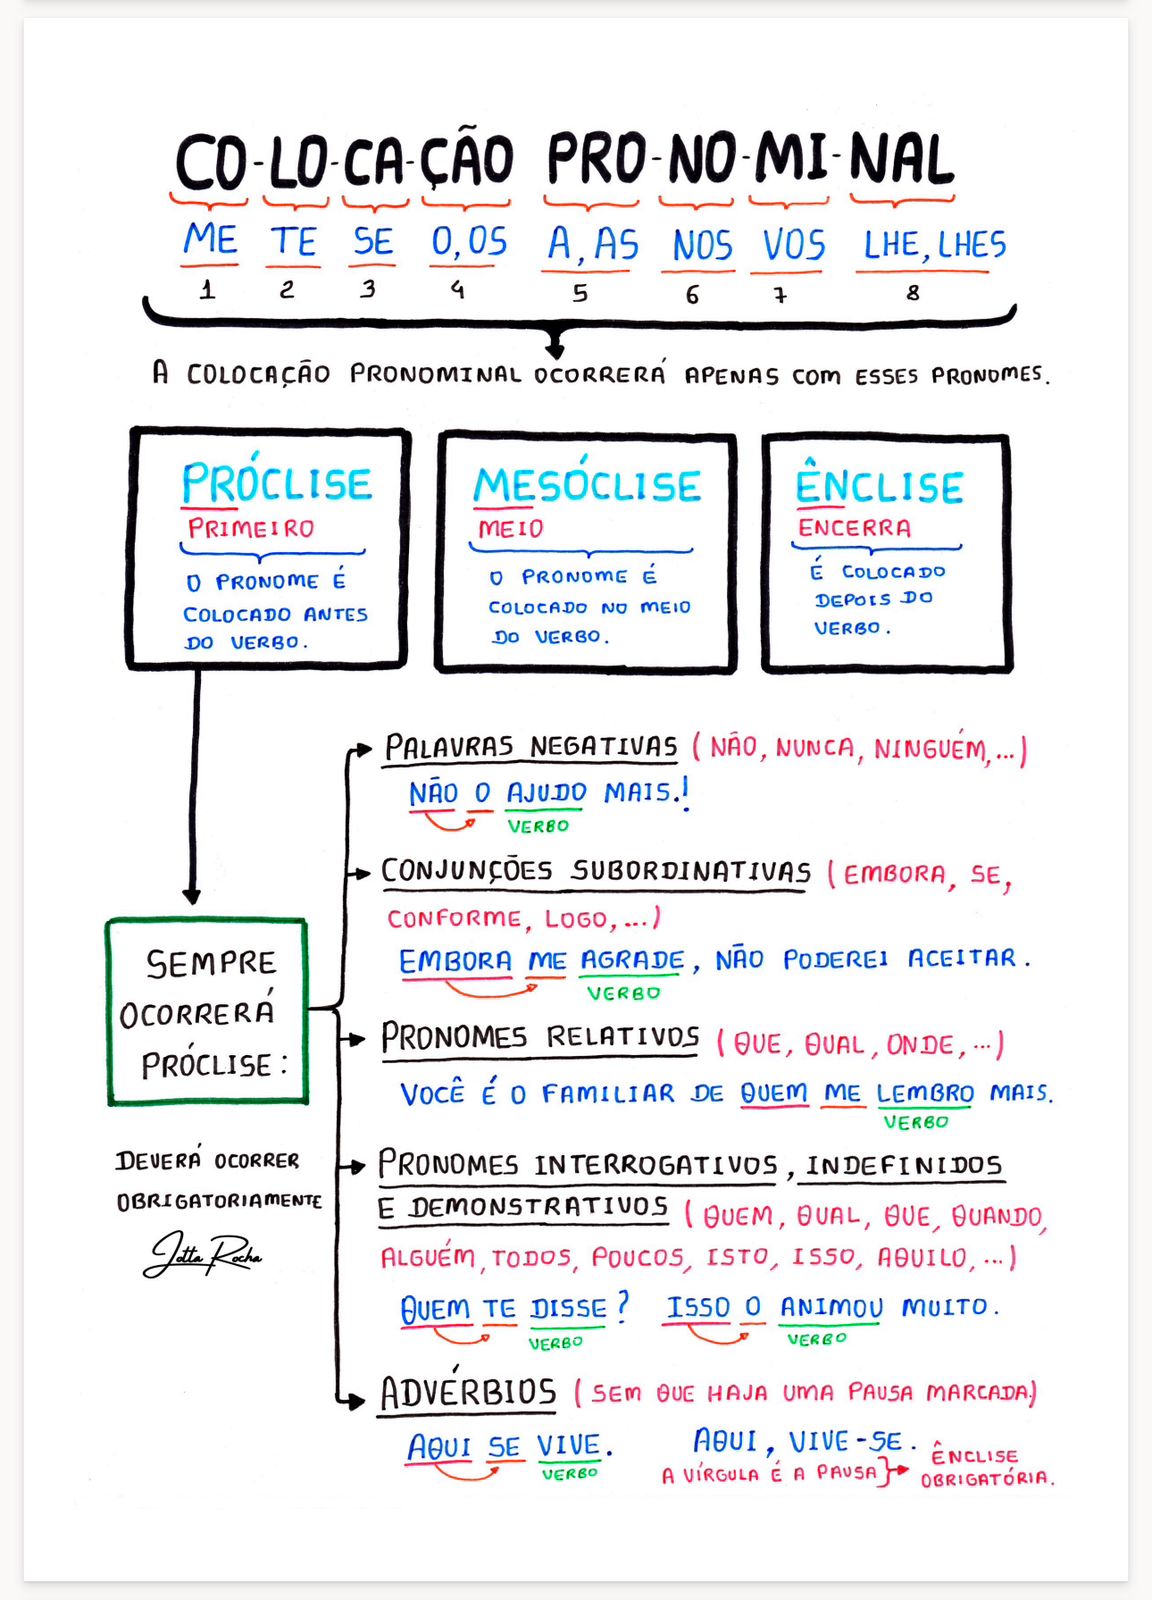 CO-LO-CA-ÇÃO PRO-NO-MI-NAL
ME TE SE O,OS A,AS NOS VOS LHE,LHES
1 2 3 4 5 6 7 8
A COLOCAÇÃO PRONOMINAL OCORRERÁ APENAS COM ESSES PRONOMES.
PRÓCLISE
PRIMEIRO
O PRONOME É
COLOCADO ANTES
DO VERBO.
MESÓCLISE
MEIO
O PRONOME É
COLOCADO NO MEIO
DO VERBO.
ÊNCLISE
ENCERRA
É COLOCADO
DEPOIS DO
VERBO.
SEMPRE
OCORRERÁ
PRÓCLISE:
DEVERÁ OCORRER
OBRIGATORIAMENTE
Jotta Rocha
PALAVRAS NEGATIVAS (NÃO, NUNCA, NINGUÉM,...)
NÃO O AJUDO MAIS.!
VERBO
CONJUNÇÕES SUBORDINATIVAS (EMBORA, SE,
CONFORME, LOGO,...)
EMBORA ME AGRADE, NÃO PODEREI ACEITAR.
VERBO
PRONOMES RELATIVOS (QUE, QUAL, ONDE,...)
VOCÊ É O FAMILIAR DE QUEM ME LEMBRO MAIS.
VERBO
PRONOMES INTERROGATIVOS, INDEFINIDOS
E DEMONSTRATIVOS (QUEM, QUAL, QUE, QUANDO,
ALGUÉM, TODOS, POUCOS, ISTO, ISSO, AQUILO,...)
QUEM TE DISSE? ISSO O ANIMOU MUITO.
VERBO VERBO
ADVÉRBIOS (SEM QUE HAJA UMA PAUSA MARCADA)
AQUI SE VIVE. AQUI, VIVE-SE.
VERBO
A VÍRGULA É A PAUSA
ÊNCLISE
OBRIGATÓRIA.